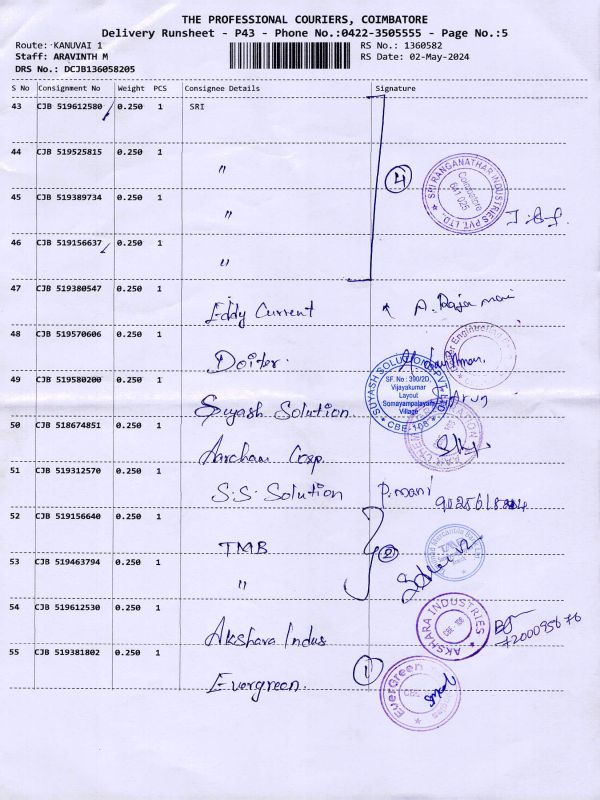 THE PROFESSIONAL COURIERS, COIMBATORE
Delivery Runsheet - P43 - Phone No.:0422-3505555 - Page No.:5
Route: KANUVAI 1 RS No.: 1360582
Staff: ARAVINTH M RS Date: 02-May-2024
DRS No.: DCJB136058205
S No Consignment No Weight PCS Consignee Details Signature
43 CJB 519612580 0.250 1 SRI
44 CJB 519525815 0.250 1 〃
4
SRI RANGANATHAR INDUSTRIES PVT. LTD.
Coimbatore
641 025
45 CJB 519389734 0.250 1 〃
46 CJB 519156637 0.250 1 〃
47 CJB 519380547 0.250 1
Eddy Current A. Raja mani
48 CJB 519570606 0.250 1
Doiter.
49 CJB 519580200 0.250 1
SUYASH SOLUTIONS PVT LTD
SF. No : 390/2D,
Vijayakumar
Layout
Somayampalayam
Village
CBE-108
Suyash Solution Arug
50 CJB 518674851 0.250 1
Aarcham Corp.
51 CJB 519312570 0.250 1
S.S. Solution P. mani
52 CJB 519156640 0.250 1
TMB 2
53 CJB 519463794 0.250 1
〃
54 CJB 519612530 0.250 1
Akshara Indus
AKSHARA INDUSTRIES
CBE
7200095676
55 CJB 519381802 0.250 1
1
Evergreen.
EverGreen